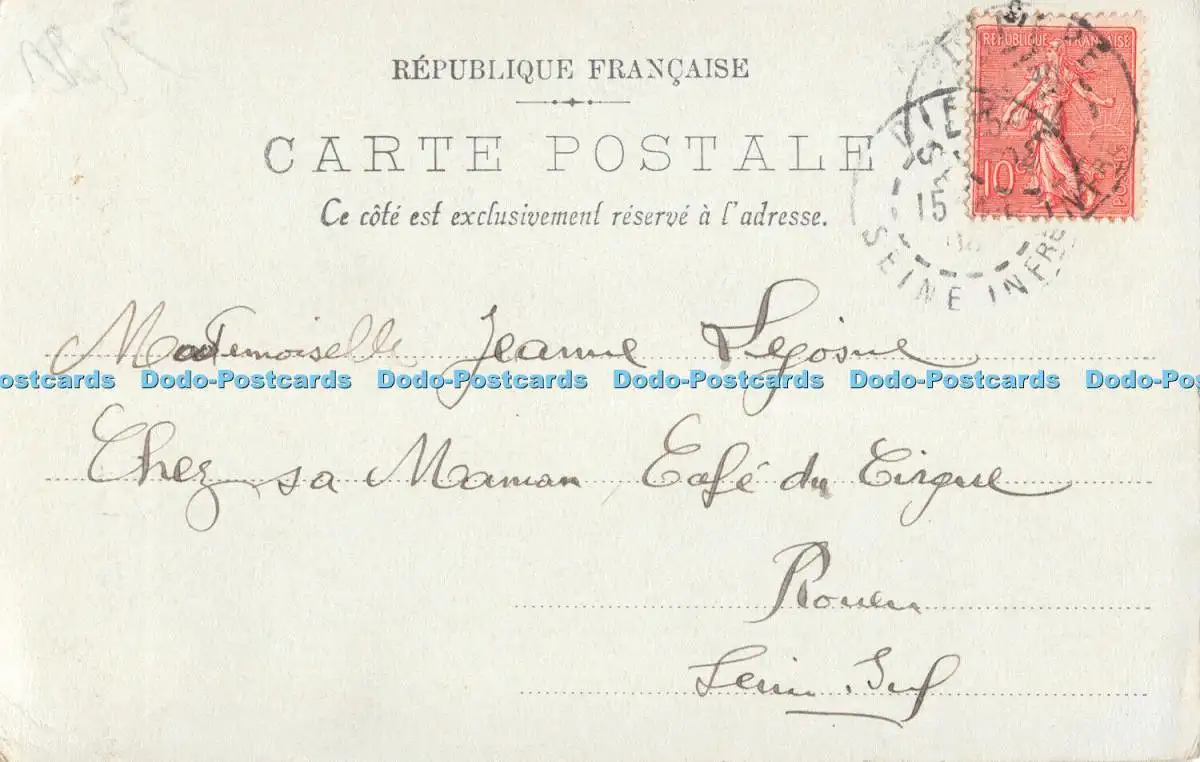 RÉPUBLIQUE FRANÇAISE
CARTE POSTALE
Ce côté est exclusivement réservé à l'adresse.
RÉPUBLIQUE FRANÇAISE
10
15
SEINE INFRE
Mademoiselle Jeanne Legosne
Dodo-Postcards Dodo-Postcards Dodo-Postcards Dodo-Postcards Dodo-Postcards
Chez sa Maman Café du Cirque
Rouen
Seine Inf